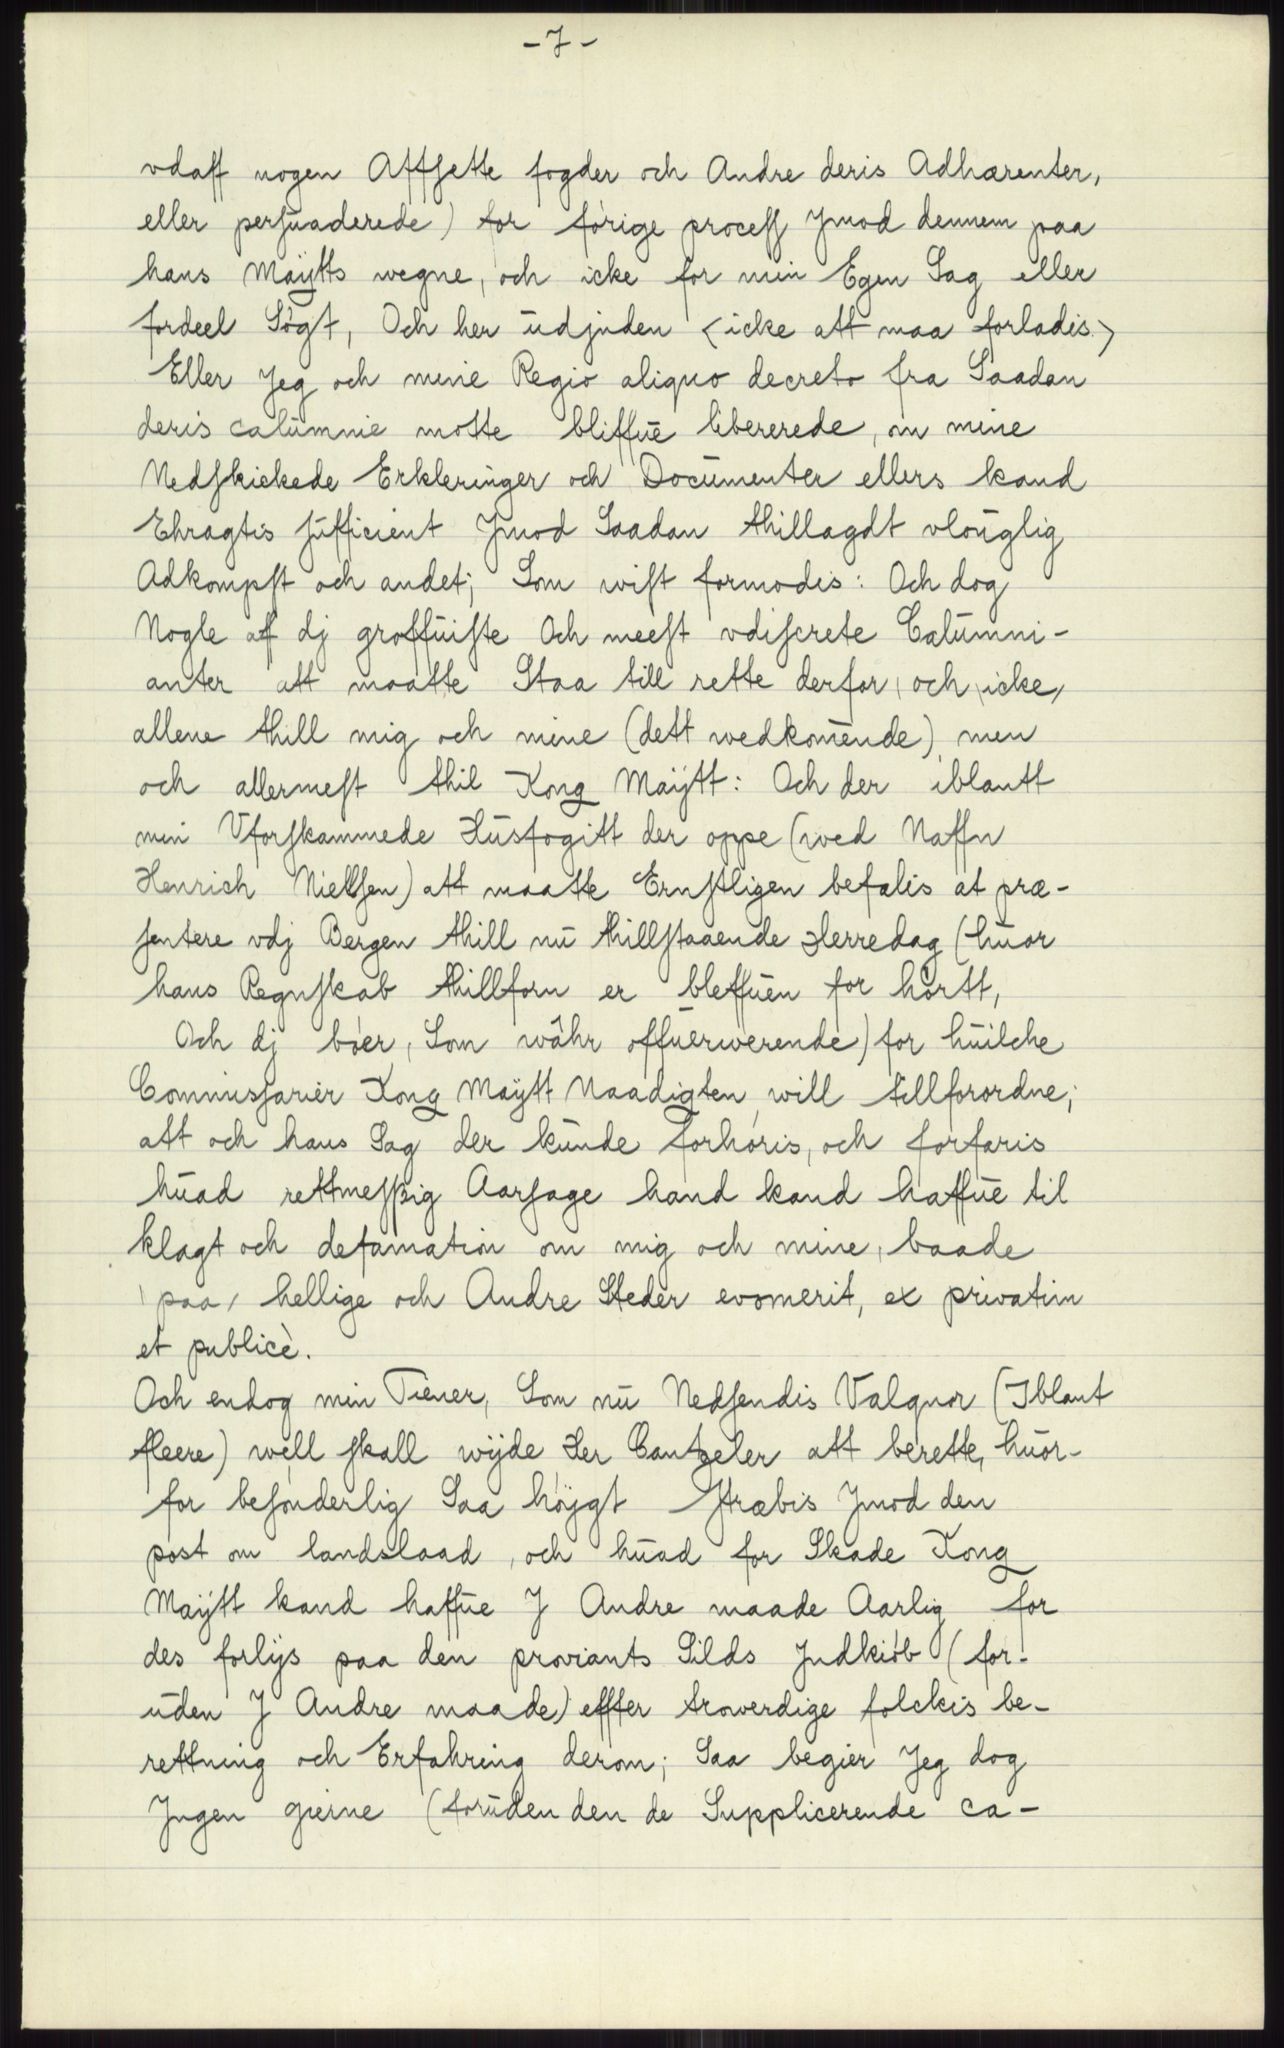 - 7 -
vdaff nogen Affsette fogder och Andre deris Adhærenter,
eller persuaderede) for förige process Jmod dennem paa
hans Maÿtts wegne, och icke for min Egen Sag eller
fordeel Sögt, Och her üdjnden <icke att maa forladis.>
Eller Jeg och mine Regio aliquo decreto fra Saadan
deris calümnie motte bliffüe libererede, om mine
Nedskickede Erkleringer och Documenter ellers kand
Ehragtis süfficient Jmod Saadan thillagdt vloüglig
Adkompst och andet; Som wist formodis: Och dog
Nogle af dj groffüiste Och meest vdiscrete Calümni-
anter att maatte Staa till rette derfor, och, icke,
allene thill mig och mine (dett wedkomende) men
och allermest thil Kong Maÿtt: Och der iblantt
min Vforskammede Hüsfogitt der oppe (wed Naffn
Henrich Nielsen) att maatte Ernstligen befalis at præ-
sentere vdj Bergen thill nü thillstaaende Herredag (hüor
hans Regnskab thillforn er bleffüen for hörtt,
Och dj böer, Som wåhr offüerwerende) for hüilche
Commissarier Kong Maÿtt Naadigten will tillforordne;
att och hans Sag der künde forhöris, och forfaris
hüad rettmessig Aarsage hand kand haffüe til
klagt och defamation om mig och mine, baade
, paa, hellige och Andre Steder evomerit, ex privatim
et publicè.
Och endog min Tiener, Som nü Nedsendis Valquor (Iblant
fleere) well skall wijde Her Cantzeler att berette, hüor-
for besönderlig Saa höÿgt stræbis Jmod den
post om landslaad, och hüad for Skade Kong
Maÿtt kand haffüe J Andre maade Aarlig for
des forlijs paa den proviants Silds Jndkiöb (for-
üden J Andre maade) effter trowerdige folckis be-
rettning och Erfahring derom; Saa begier Jeg dog
Jngen gierne (forüden den de Supplicerende ca-